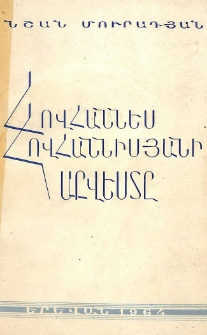 ՆՇԱՆ ՄՈՒՐԱԴՅԱՆ
ՀՈՎՀԱՆՆԵՍ
ՀՈՎՀԱՆՆԻՍՅԱՆԻ
ԱՐՎԵՍՏԸ
ԵՐԵՎԱՆ 1964